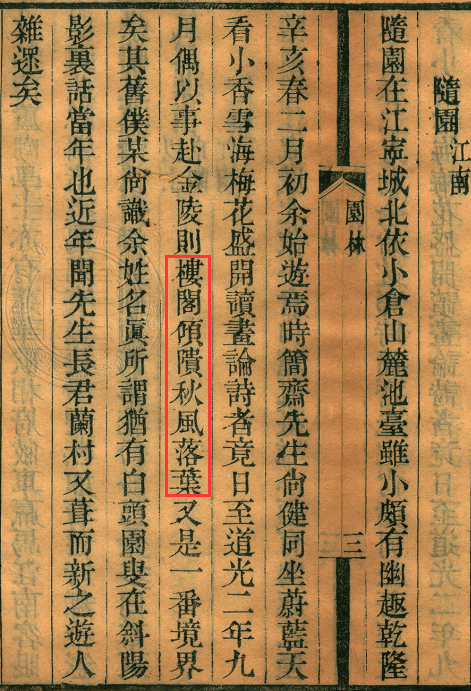 隨園 江南
隨園在江寧城北依小倉山麓池臺雖小頗有幽趣乾隆
園林
三
辛亥春二月初余始遊焉時簡齋先生尙健同坐蔚藍天
看小香雪海梅花盛開讀畫論詩者竟日至道光二年九
月偶以事赴金陵則樓閣傾隤秋風落葉又是一番境界
矣其舊僕某尙識余姓名眞所謂猶有白頭園叟在斜陽
影裏話當年也近年聞先生長君蘭村又葺而新之遊人
雜遝矣